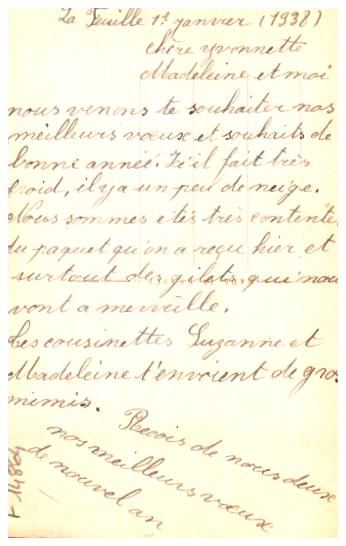 La Feuille 1er janvier (1938)
chère yvonnette
Madeleine et moi
nous venons te souhaiter nos
meilleurs vœux et souhaits de
bonne année. Ici il fait très
froid, il y a un peu de neige.
Nous sommes etés très contentes
du paquet qu'on a reçu hier et
surtout des gilets qui nous
vont a merveille.
Les cousinettes Suzanne et
Madeleine t'envoient de gros
mimis.
Recois de nous deux
nos meilleurs vœux
de nouvel an